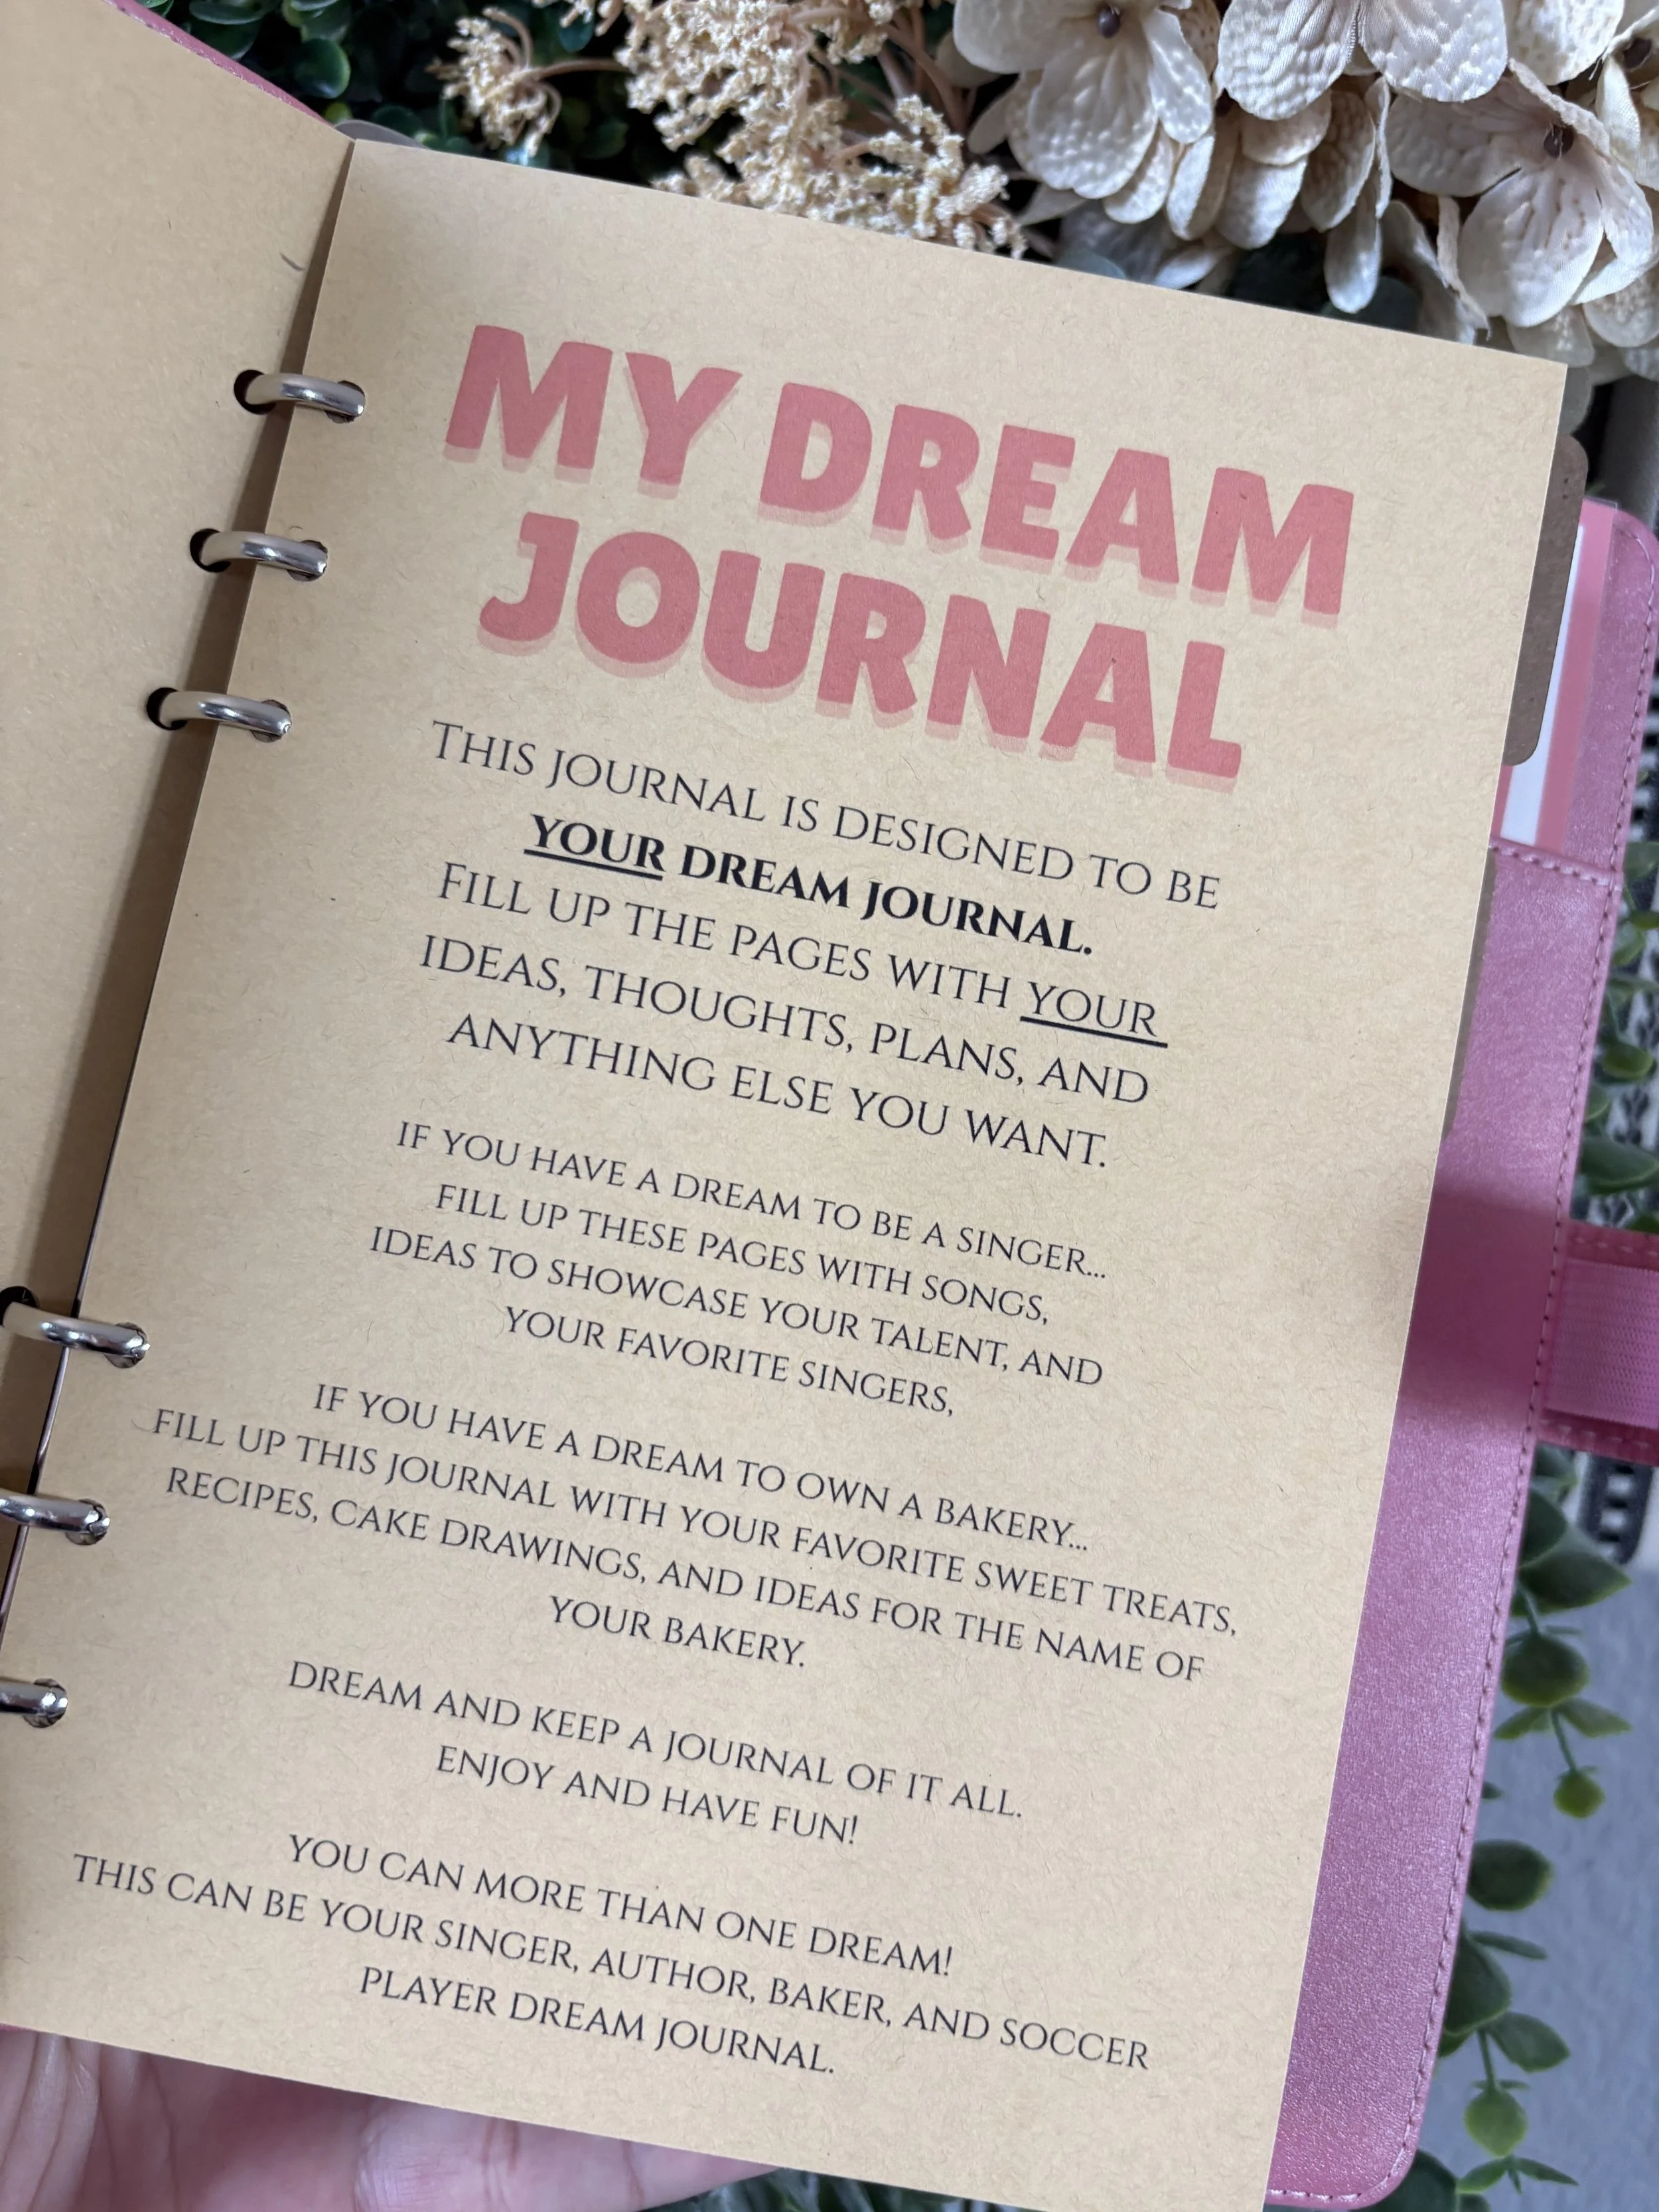 MY DREAM
JOURNAL
THIS JOURNAL IS DESIGNED TO BE
YOUR DREAM JOURNAL.
FILL UP THE PAGES WITH YOUR
IDEAS, THOUGHTS, PLANS, AND
ANYTHING ELSE YOU WANT.
IF YOU HAVE A DREAM TO BE A SINGER...
FILL UP THESE PAGES WITH SONGS,
IDEAS TO SHOWCASE YOUR TALENT, AND
YOUR FAVORITE SINGERS,
IF YOU HAVE A DREAM TO OWN A BAKERY...
FILL UP THIS JOURNAL WITH YOUR FAVORITE SWEET TREATS,
RECIPES, CAKE DRAWINGS, AND IDEAS FOR THE NAME OF
YOUR BAKERY.
DREAM AND KEEP A JOURNAL OF IT ALL.
ENJOY AND HAVE FUN!
YOU CAN MORE THAN ONE DREAM!
THIS CAN BE YOUR SINGER, AUTHOR, BAKER, AND SOCCER
PLAYER DREAM JOURNAL.